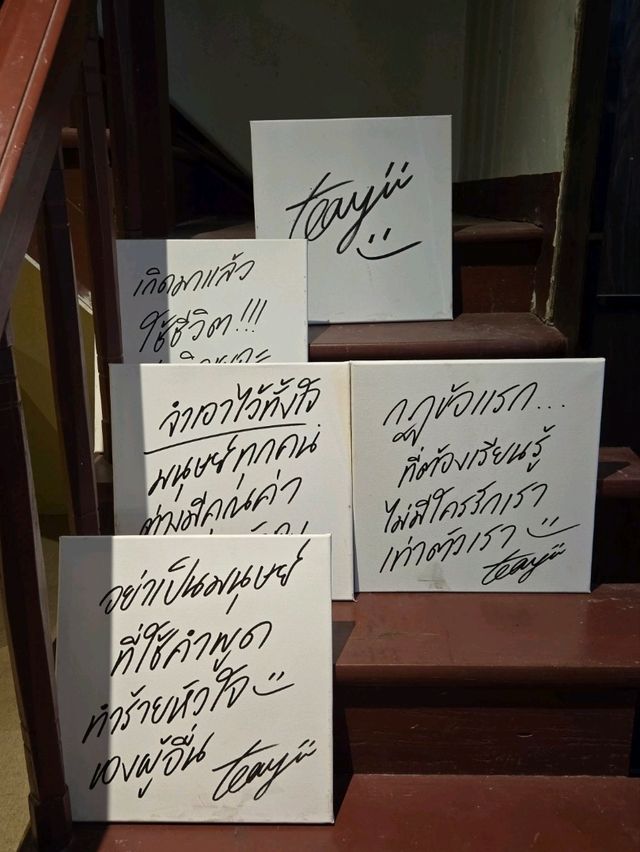 teayii
เกิดมาแล้ว
ใช้ชีวิต!!!
จำเอาไว้ทั้งใจ
มนุษย์ทุกคน
ต่างมีคุณค่า
กฎข้อแรก...
ที่ต้องเรียนรู้
ไม่มีใครรักเรา
เท่าตัวเรา
teayii
อย่าเป็นมนุษย์
ที่ใช้คำพูด
ทำร้ายหัวใจ
ของผู้อื่น
teayii